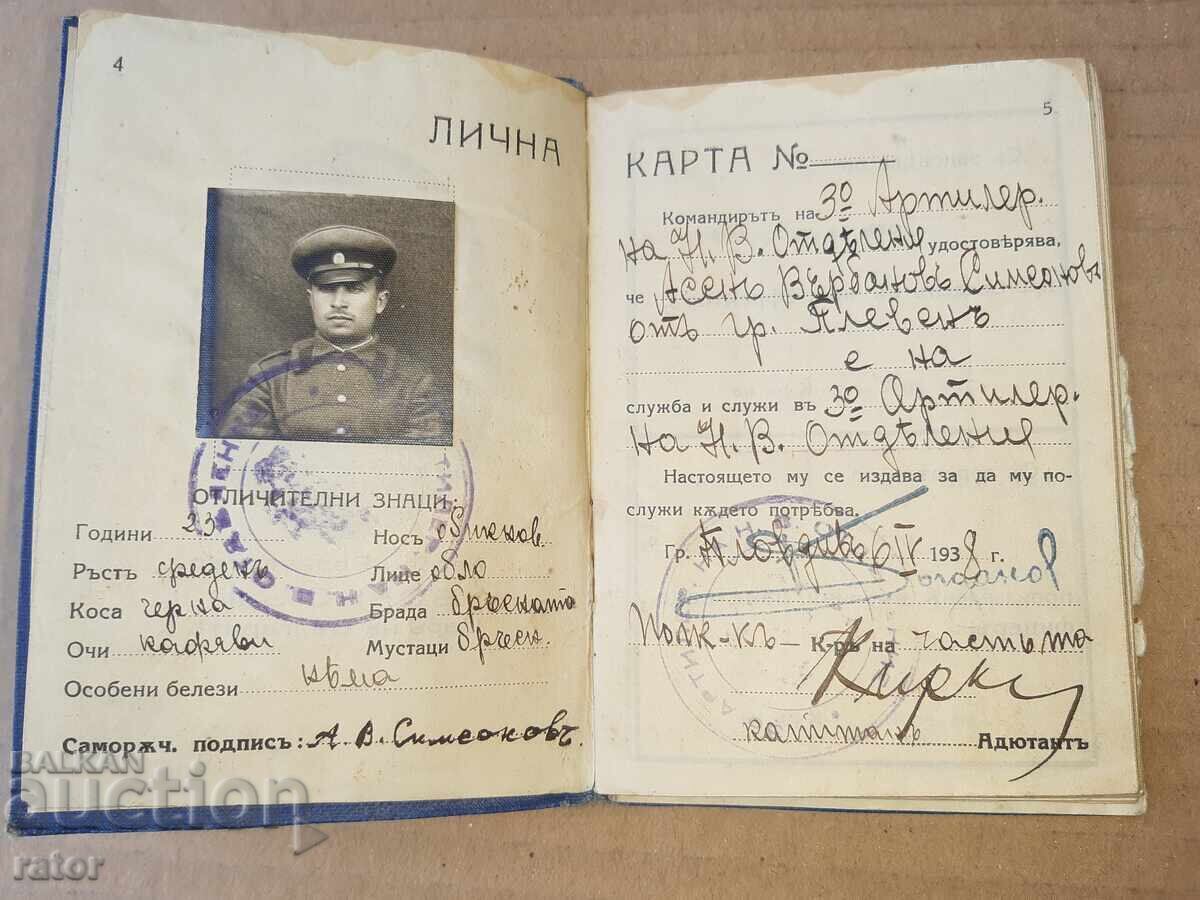 4
ЛИЧНА
ОТЛИЧИТЕЛНИ ЗНАЦИ:
Години 23 Носъ обикнов
Ръстъ среденъ Лице обло
Коса черна Брада бръсната
Очи кафяви Мустаци бръсн.
Особени белези нѣма
Саморѫч. подпись: А. В. Симеоновъ
5
КАРТА №
Командирътъ на 3о Артилер.
на Н. В. Отдѣление удостовѣрява,
че Асенъ Върбановъ Симеоновъ
отъ гр. Плевенъ
е на
служба и служи въ 3о Артилер.
на Н. В. Отдѣление
Настоящето му се издава за да му по-
служи кѫдето потрѣбва.
Гр. Пловдивъ 6 IV 1938 г.
К-ръ на частьта
капитанъ Адютантъ
BALKAN
auction
rator